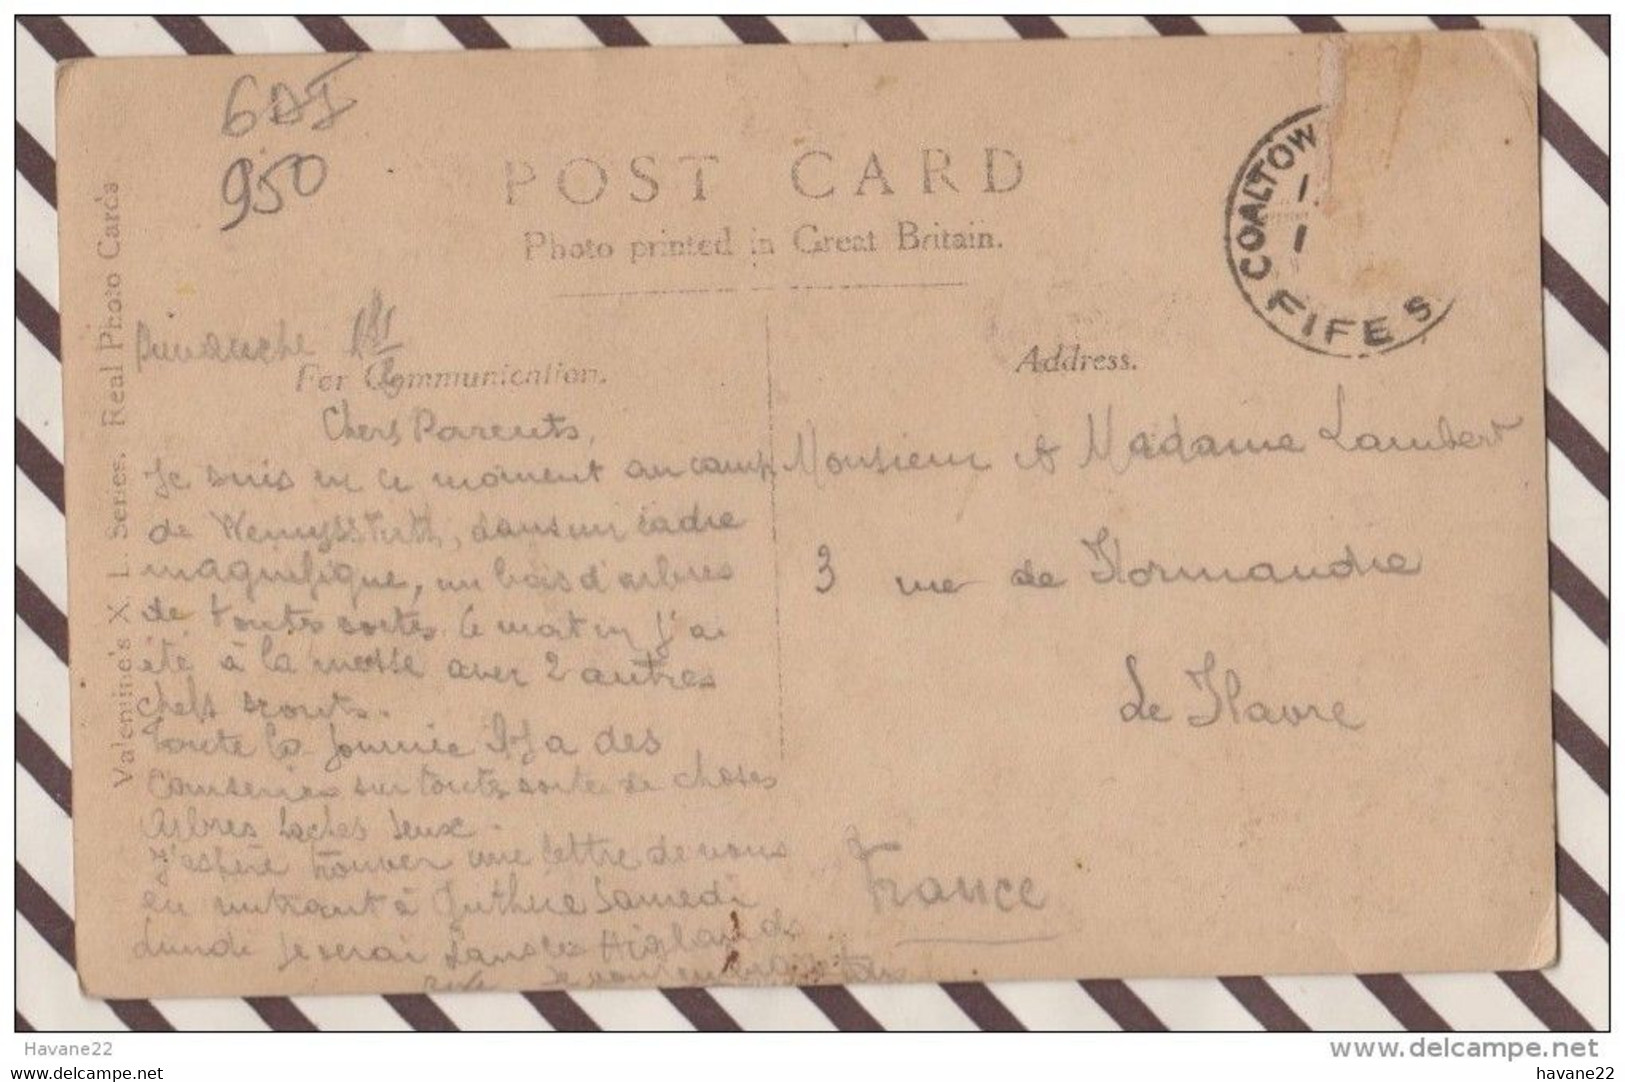 6AI
950
POST CARD
Photo printed in Great Britain.
COALTOW
FIFE S
Valentine's X. L. Series. Real Photo Cards
Dimanche
For Communication.
Address.
Chers Parents,
Je suis en ce moment au camp
de Wemyss, dans un cadre
magnifique, un bois d'arbres
de toutes sortes. Ce matin j'ai
été à la messe avec 2 autres
chefs scouts.
Toute la journée il y a des
causeries sur toutes sorte de choses
Arbres
J'espère trouver une lettre de vous
en rentrant à Samedi
Lundi je serai dans les Higlands
Je vous embrasse
Monsieur et Madame Lambert
3 rue de Normandie
Le Havre
France
Havane22
www.delcampe.net
havane22